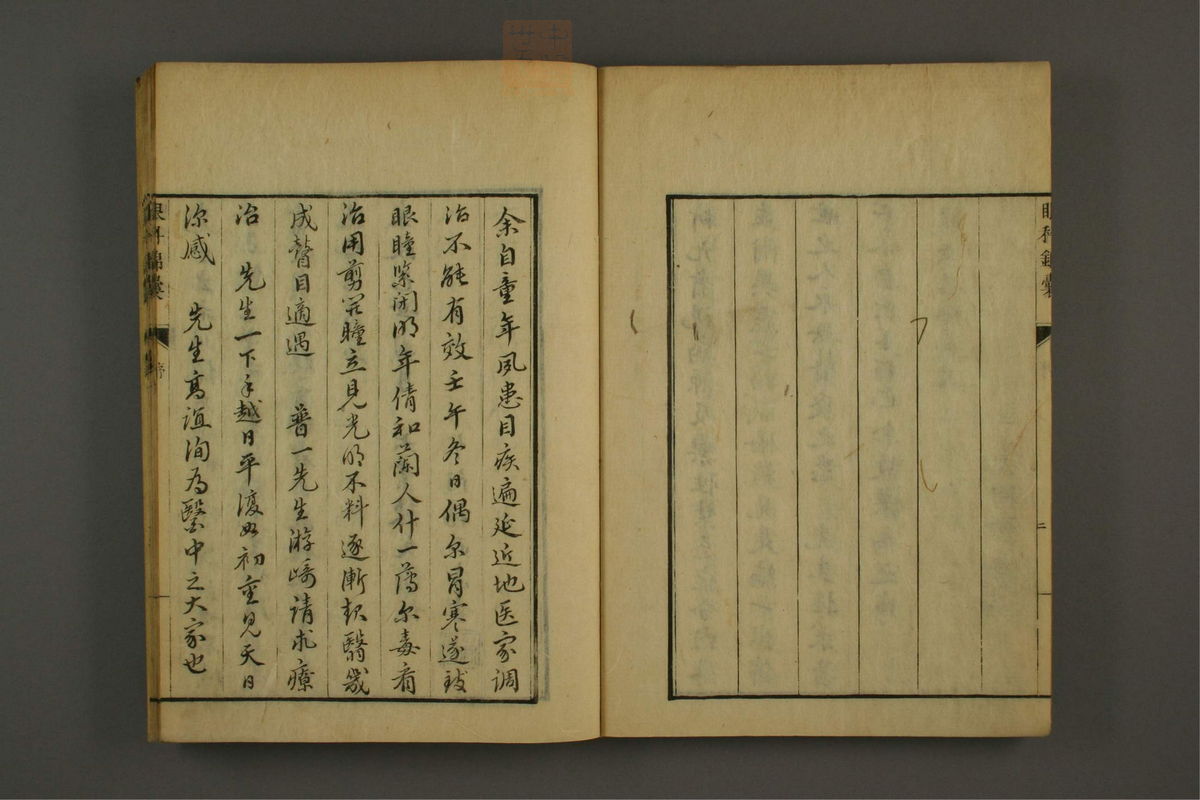 眼科錦囊
二
余自童年夙患目疾遍延近地医家调
治不能有效壬午冬日偶尔冒寒遂致
眼瞳紧闭明年倩和蘭人什一薄尔毒看
治用剪開瞳立見光明不料逐漸起翳幾
成瞽目適遇 普一先生游崎請求療
治 先生一下手越日平復如初重見天日
深感 先生高誼洵为醫中之大家也
眼科錦囊